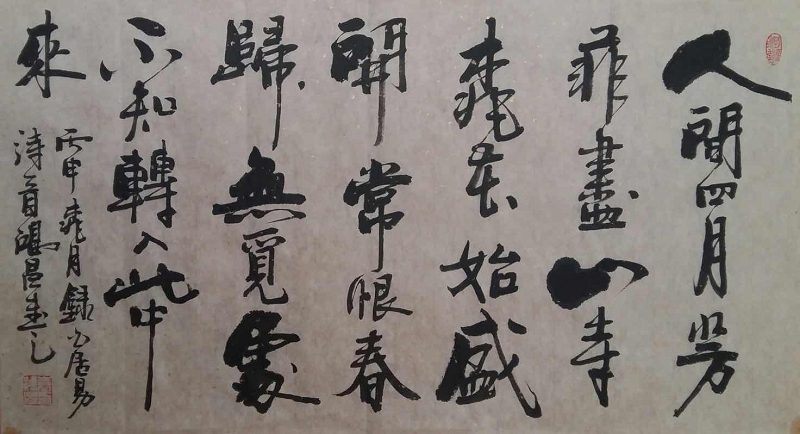 人間四月芳
菲盡山寺
桃花始盛
開常恨春
歸無覓處
不知轉入此中
來
丙申桃月錄白居易
詩一首